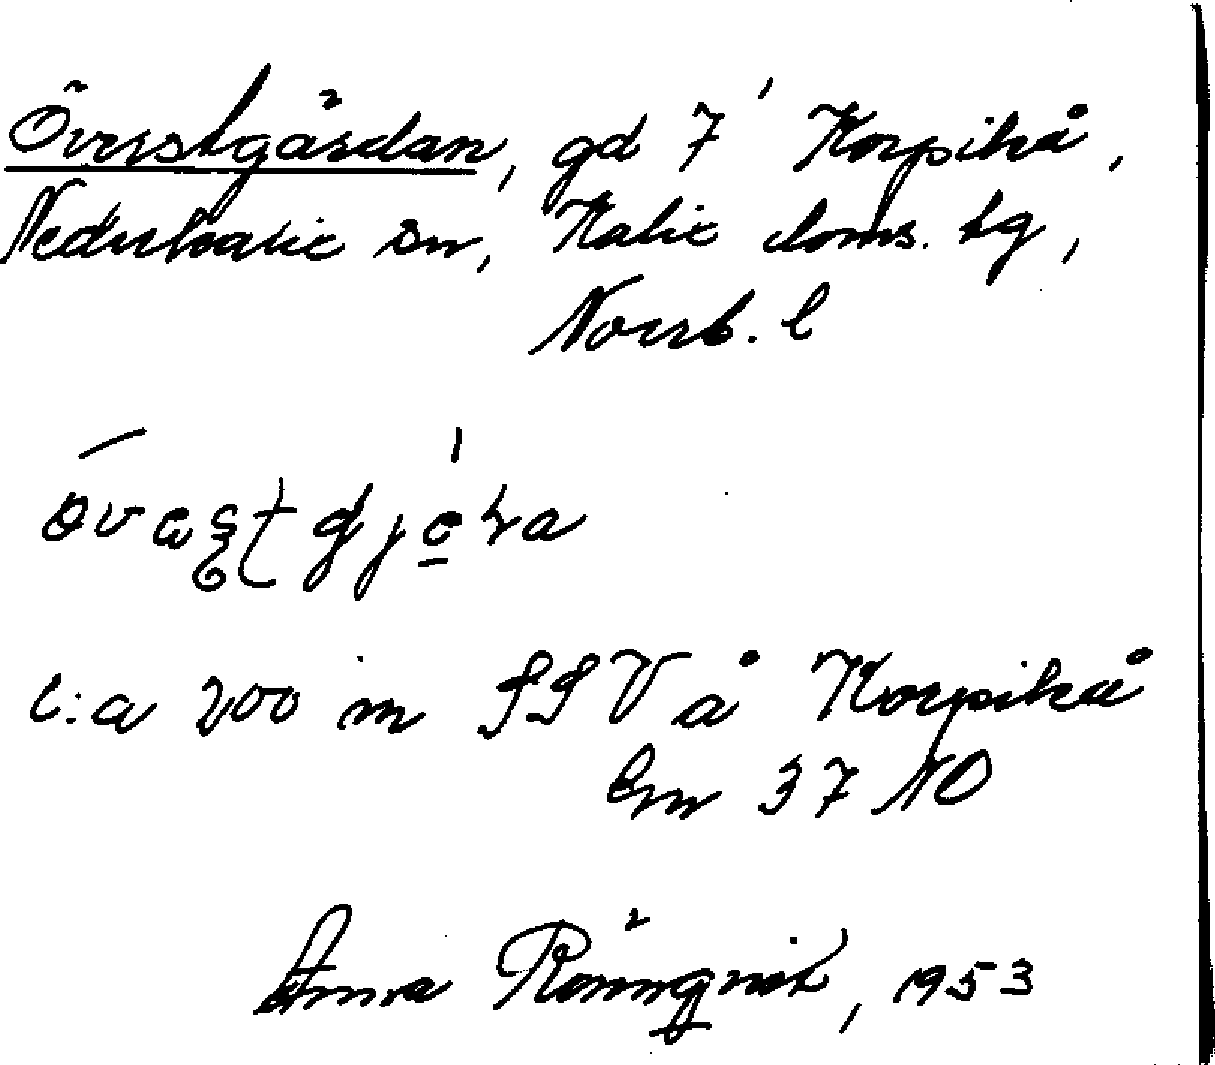 Överstgärdan, gd 7' Korpikå,
Nederkalix sn, Kalix doms. tg,
Norrb. l
c:a 200 m SSV å Korpikå
Gm 37 NO
Anna Rönnqvist, 1953